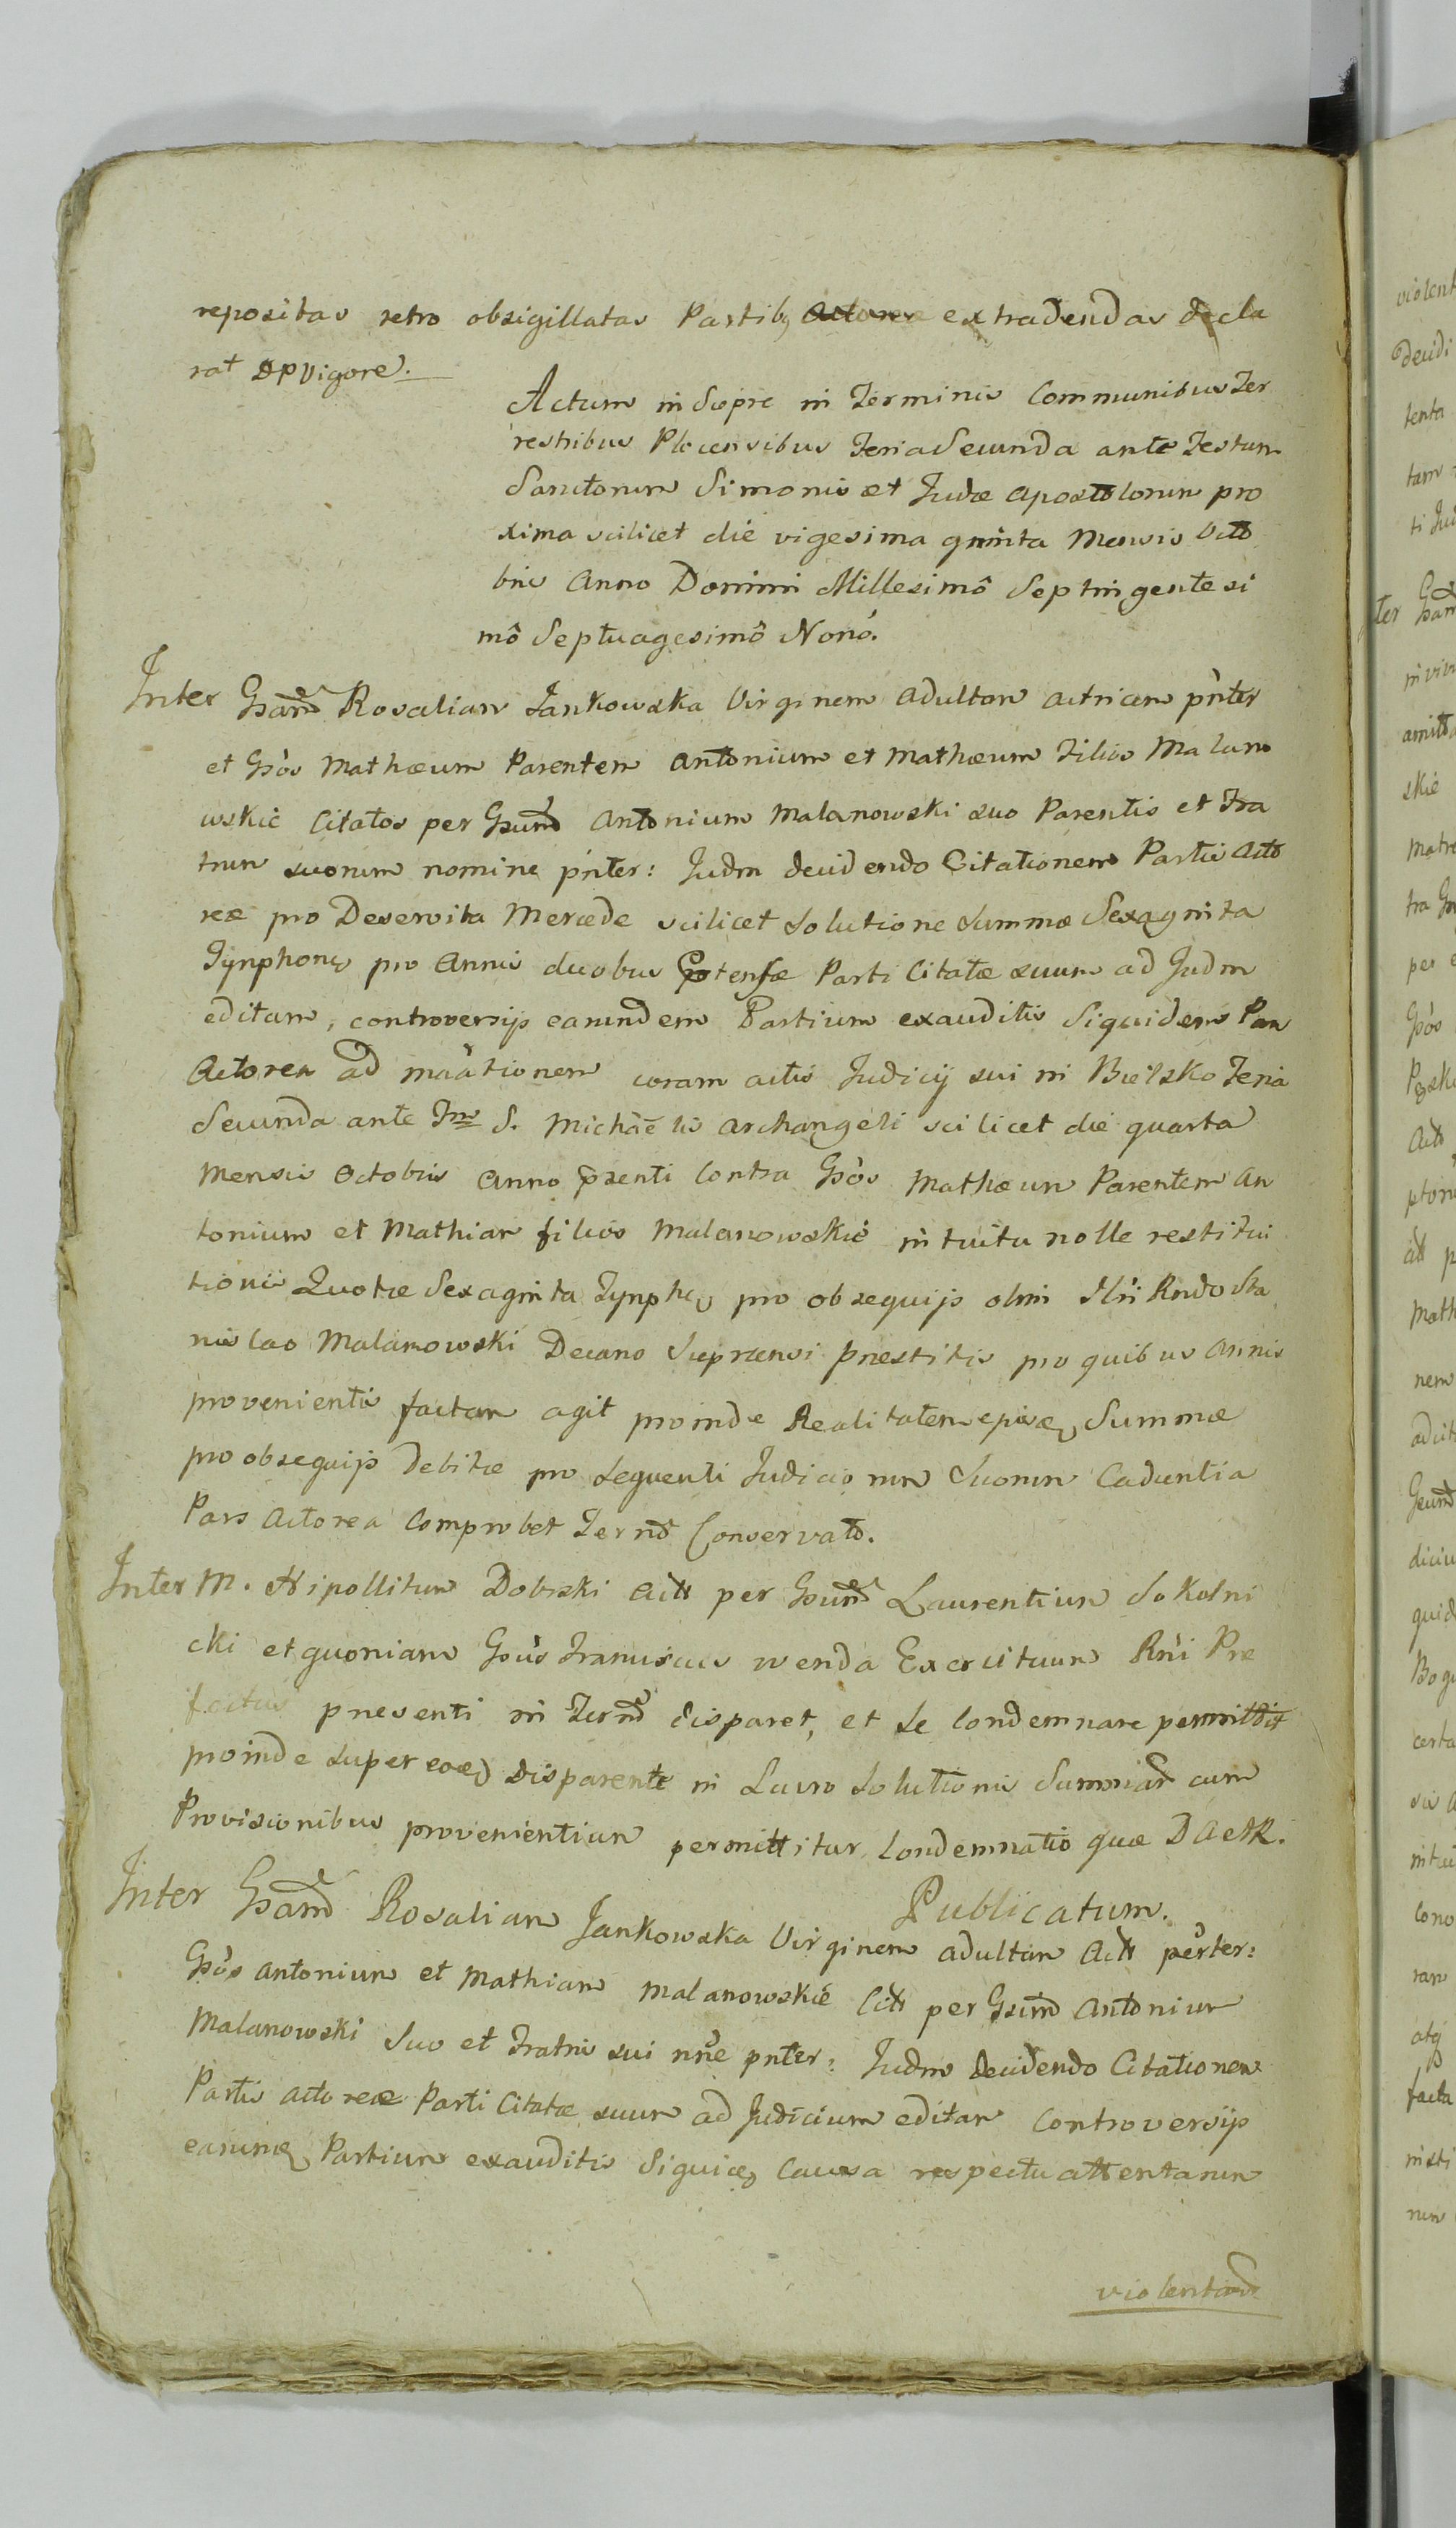 repositas retro obsigillatas Partibq Actoreæ extradendas decla
rat DP vigore.
Actum in Siepre in Terminis Communibus Ter
restribus Plocensibus Feria Secunda ante Festum
Sanctorum Simonis et Judæ Apostolorum pro
xima scilicet die vigesima quinta Mensis Octo
bris Anno Domini Millesimô Septingentesi
mô Septuagesimô Nonô.
Inter Gsam̃d Rosaliam Jankowska Virginem adultam actricem pñter
et Gsos Mathæum Parentem Antonium et Mathæum Filios Malano
wskie Citatos per Gsum̃d Antonium Malanowski suo Parentis et Fra
trum suorum nomine pñter: Judm decidendo Citationem Partis Acto
reæ pro Deservita Mercede scilicet Solutione Summæ Sexaginta
Tynphonq pro Annis duobus Parti Citatæ suum ad Judm
editam, controversijs earundem Partium exauditis Siquidem Pars
Actorea ad coram actis Judicij sui in Bielsko Feria
Secunda ante Fm S. Michãelis Archangeli scilicet die quarta
Mensis Octobris Anno p̃senti Contra Gsos Mathæum Parentem An
tonium et Mathiam filios Malanowskie intuitu nolle restitui
tionis Quotæ Sexaginta Tynphq pro obsequijs olim Rndo Sta
nislao Malanowski Decano Sieprcensi præstitis pro quibus Annis
provenientis factam agit proinde Realitatem Summæ
pro obsequijs Debitæ pro sequenti Judiciorum Suorum Caduntia
Pars Actorea Comprobet Ternõ Conservato.
Inter M. Hipollitum Dobrski Actt per Gsum̃d Laurentium Sokolni
cki et quoniam Gsus Franciscus Wenda Exercituum Rñi Præ
fectus presenti in Ternõ disparet, et Se Condemnare permittit
proinde super disparente in Lucro Solutionis Summar̃ cum
Provisionibus provenientium permittitur Condemnatio quæ D Act R.
Publicatum.
Inter Gsam̃d Rosaliam Jankowska Virginem adultam Actt pñter:
Gsos Antonium et Mathiam Malanowskie Citt per Gsum̃d Antonium
Malanowski Suo et Fratris sui nñe pñter: Judm decidendo Citationem
Partis Actoreæ Parti Citatæ suum ad Judicium editam Controversijs
Partium exauditis Causa respectu attentarum
violentiar̃